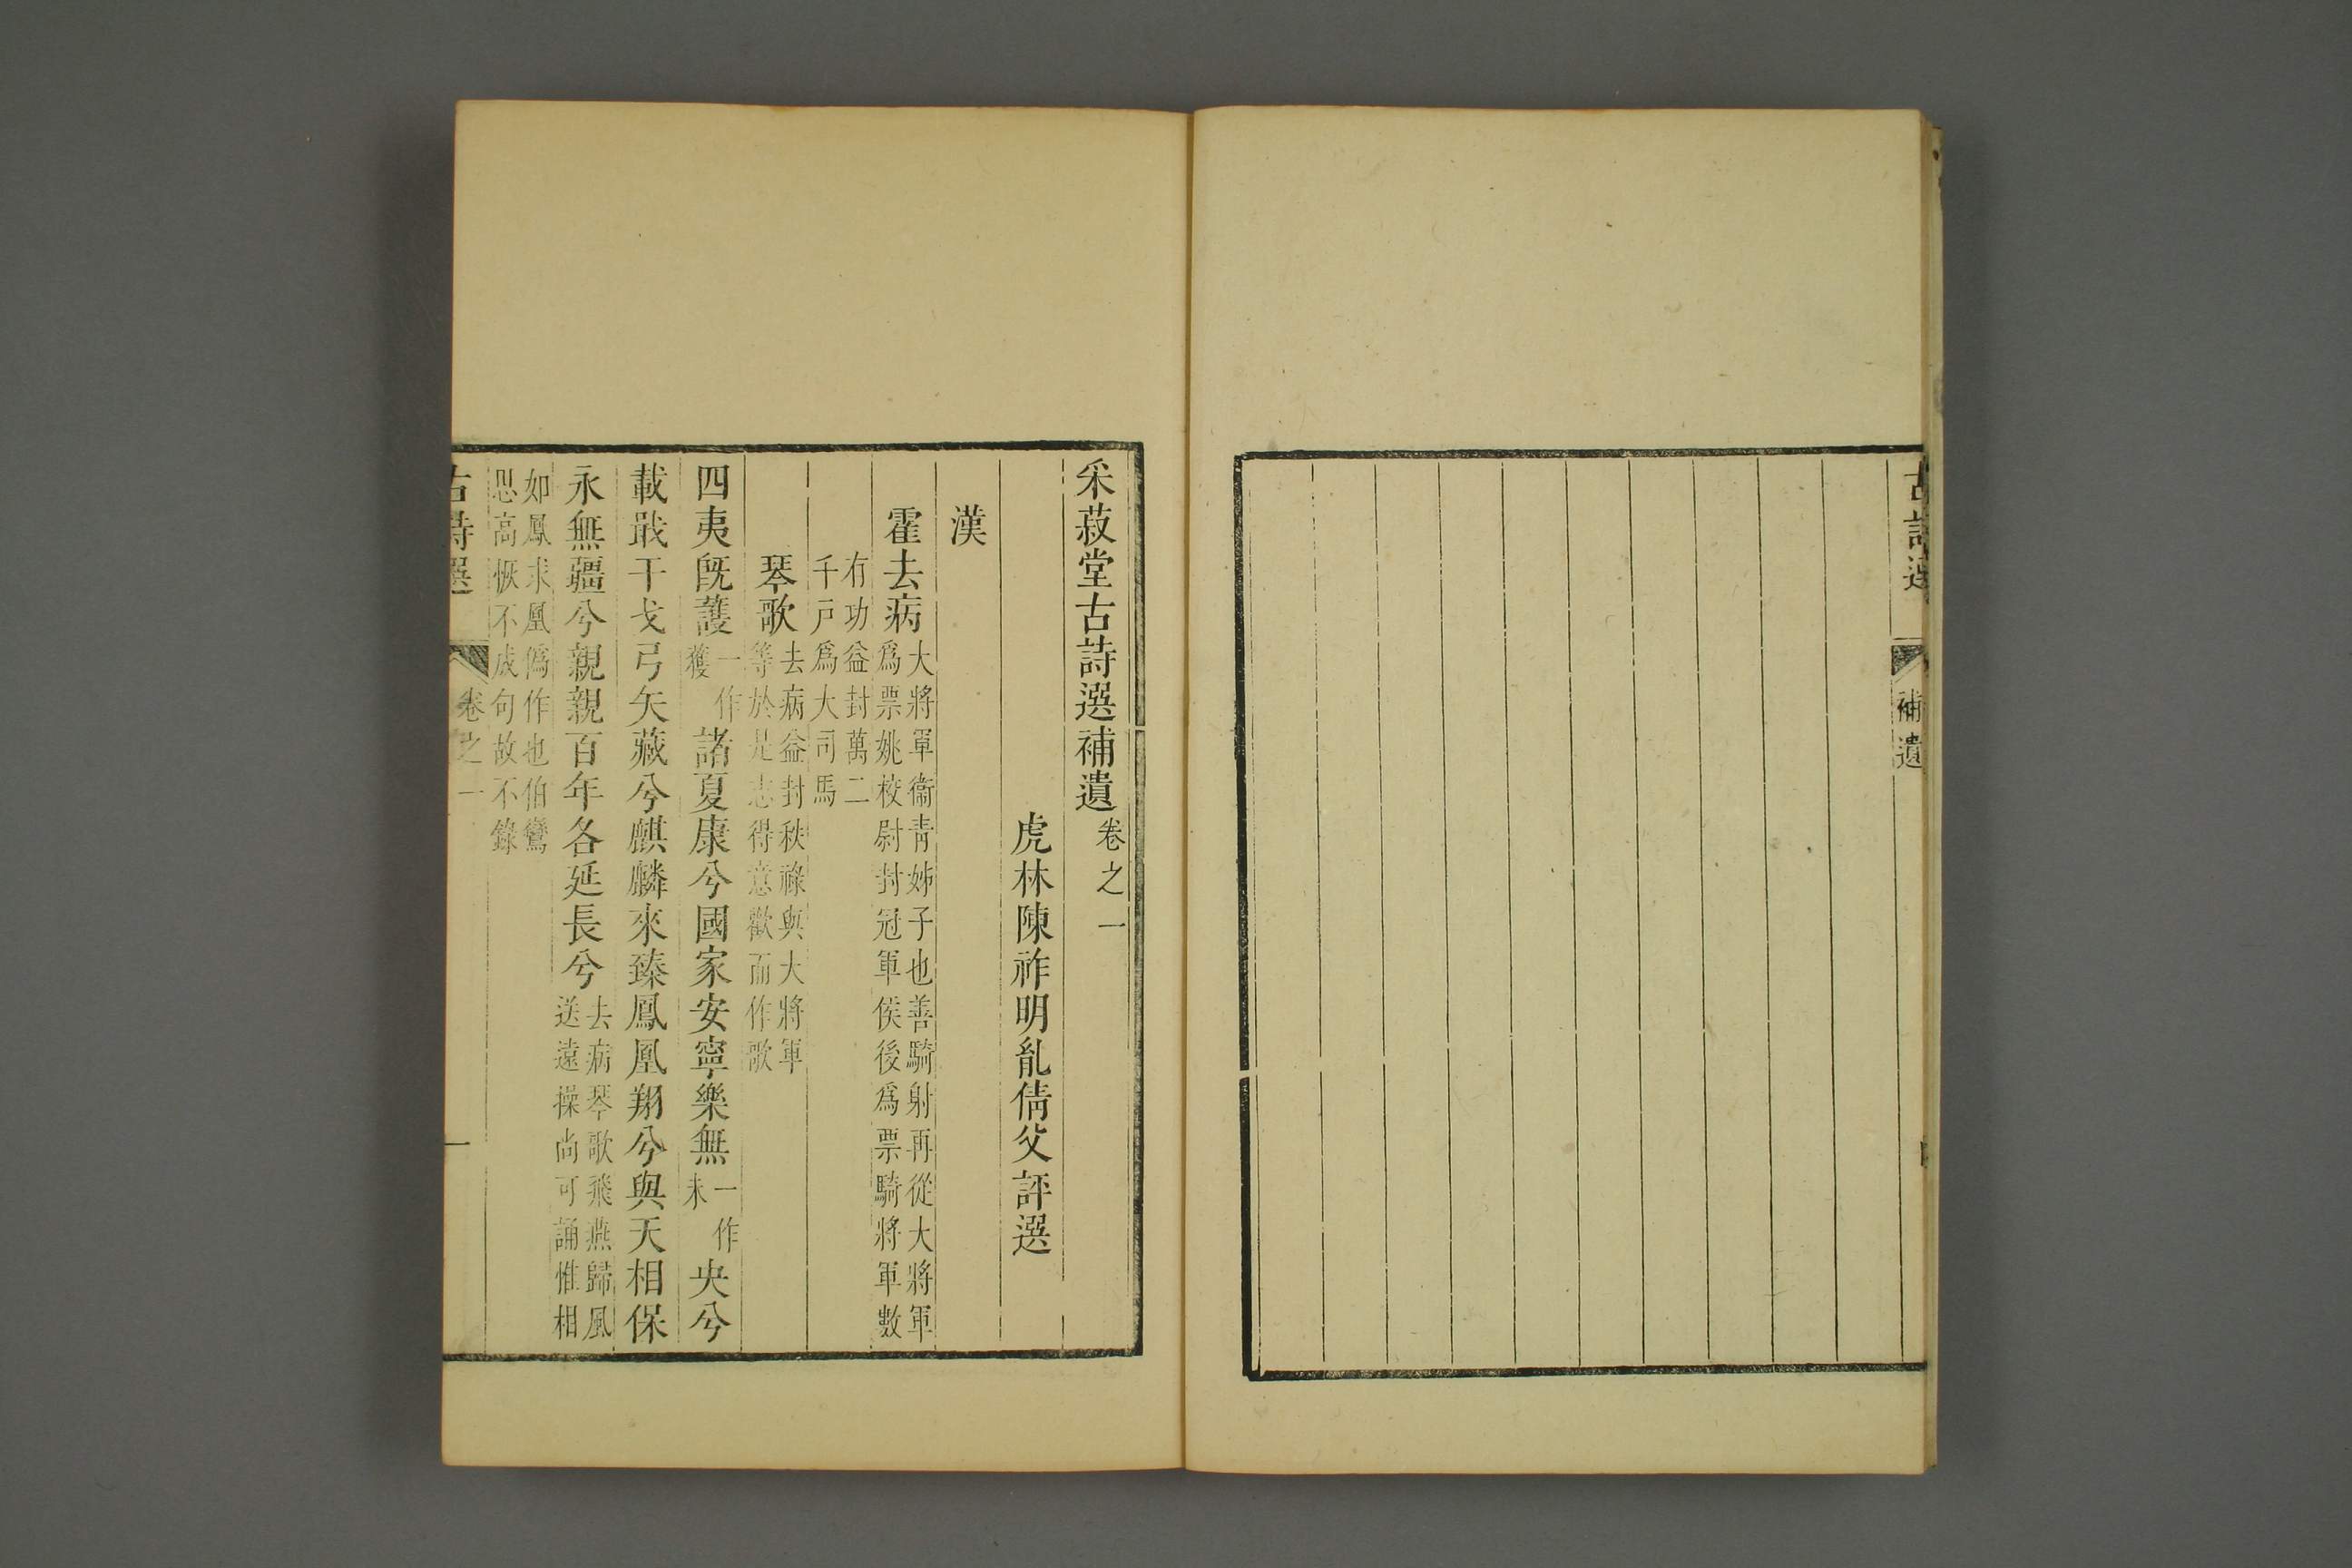 古詩選
補遺
采菽堂古詩選補遺卷之一
虎林陳祚明胤倩父評選
漢
霍去病大將軍衞青姊子也善騎射再從大將軍
爲票姚校尉封冠軍侯後爲票騎將軍數
有功益封萬二
千戸爲大司馬
琴歌去病益封秩祿與大將軍
等於是志得意歡而作歌
四夷既護一作獲諸夏康兮國家安寧樂無一作未央兮
載戢干戈弓矢藏兮麒麟來臻鳳凰翔兮與天相保
永無疆兮親親百年各延長兮去病琴歌飛燕歸風
送遠操尚可誦惟相
如鳳求凰僞作也伯鸞
思高恢不成句故不錄
古詩選
卷之一
一